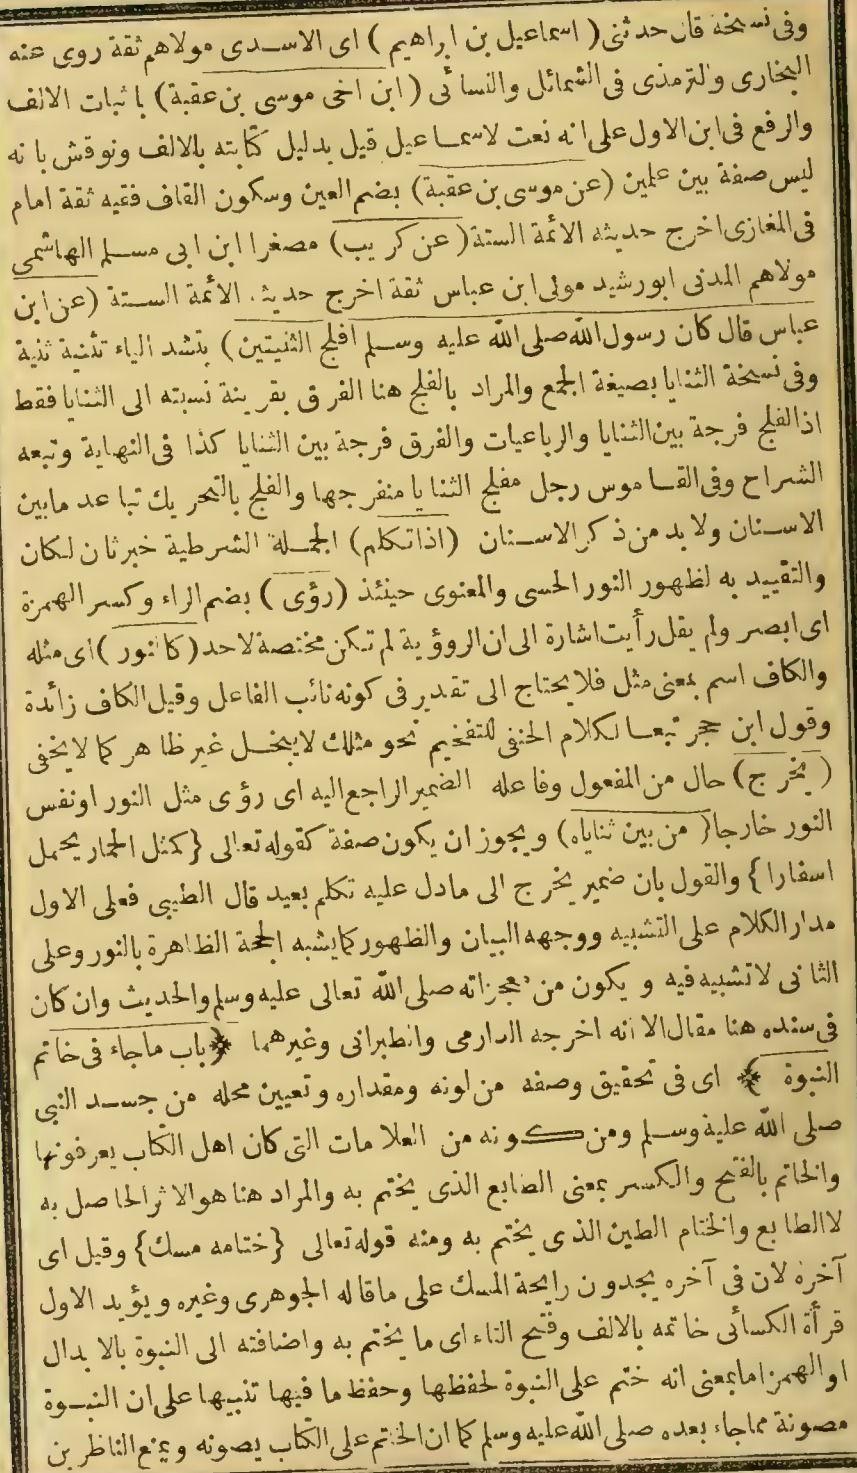 وفى نسخة قال حدثنى ( اسماعيل بن ابراهيم ) اى الاسدى مولاهم ثقة روى عنه
البخارى والترمذى فى الشمائل والنسائى ( ابن اخى موسى بن عقبة ) باثبات الالف
والرفع فى ابن الاول على انه نعت لاسماعيل قيل بدليل كتابته بالالف ونوقش بانه
ليس صفة بين علمين (عن موسى بن عقبة) بضم العين وسكون القاف فقيه ثقة امام
فى المغازى اخرج حديثه الائمة الستة ( عن كريب ) مصغرا ابن ابى مسلم الهاشمى
مولاهم المدنى ابورشيد مولى ابن عباس ثقة اخرج حديثه الائمة الستة (عن ابن
عباس قال كان رسول الله صلى الله عليه وسلم افلج الثنيتين ) بتشد الياء تثنية ثنية
وفى نسخة الثنايا بصيغة الجمع والمراد بالفلج هنا الفرق بقرينة نسبته الى الثنايا فقط
اذالفلج فرجة بين الثنايا والرباعيات والفرق فرجة بين الثنايا كذا فى النهاية وتبعه
الشراح وفى القاموس رجل مفلج الثنايا منفرجها والفلج بالتحريك تباعد مابين
الاسنان ولابد من ذكر الاسنان (اذاتكلم) الجملة الشرطية خبرثان لكان
والتقييد به لظهور النور الحسى والمعنوى حينئذ (رؤى ) بضم الراء وكسر الهمزة
اى ابصر ولم يقل رأيت اشارة الى ان الروؤية لم تكن مختصة لاحد ( كالنور ) اى مثله
والكاف اسم بمعنى مثل فلايحتاج الى تقدير فى كونه نائب الفاعل وقيل الكاف زائدة
وقول ابن حجر تبعا لكلام الحنفى للتفخيم نحو مثلك لايبخل غير ظاهر كما لايخفى
( يخرج ) حال من المفعول وفاعله الضمير الراجع اليه اى رؤى مثل النور اونفس
النور خارجا ( من بين ثناياه ) ويجوز ان يكون صفة كقوله تعالى { كمثل الحمار يحمل
اسفارا } والقول بان ضمير يخرج الى مادل عليه تكلم بعيد قال الطيبى فعلى الاول
مدار الكلام على التشبيه ووجهه البيان والظهور كمايشبه الحجة الظاهرة بالنور وعلى
الثانى لاتشبيه فيه ويكون من معجزاته صلى الله تعالى عليه وسلم والحديث وان كان
فى سنده هنا مقال الا انه اخرجه الدارمى والطبرانى وغيرهما ﴿ باب ماجاء فى خاتم
النبوة ﴾ اى فى تحقيق وصفه من لونه ومقداره وتعيين محله من جسد النبى
صلى الله عليه وسلم ومن كونه من العلامات التى كان اهل الكتاب يعرفونها
والخاتم بالفتح والكسر بمعنى الطابع الذى يختم به والمراد هنا هوالاثرالحاصل به
لاالطابع والختام الطين الذى يختم به ومنه قوله تعالى { ختامه مسك } وقيل اى
آخره لان فى آخره يجدون رايحة المسك على ماقاله الجوهرى وغيره ويؤيد الاول
قرأة الكسائى خاتمه بالالف وفتح التاء اى ما يختم به واضافته الى النبوة بالابدال
اوالهمز امابمعنى انه ختم على النبوة لحفظها وحفظ ما فيها تنبيها على ان النبوة
مصونة مماجاء بعده صلى الله عليه وسلم كما ان الختم على الكتاب يصونه ويمنع الناظرين